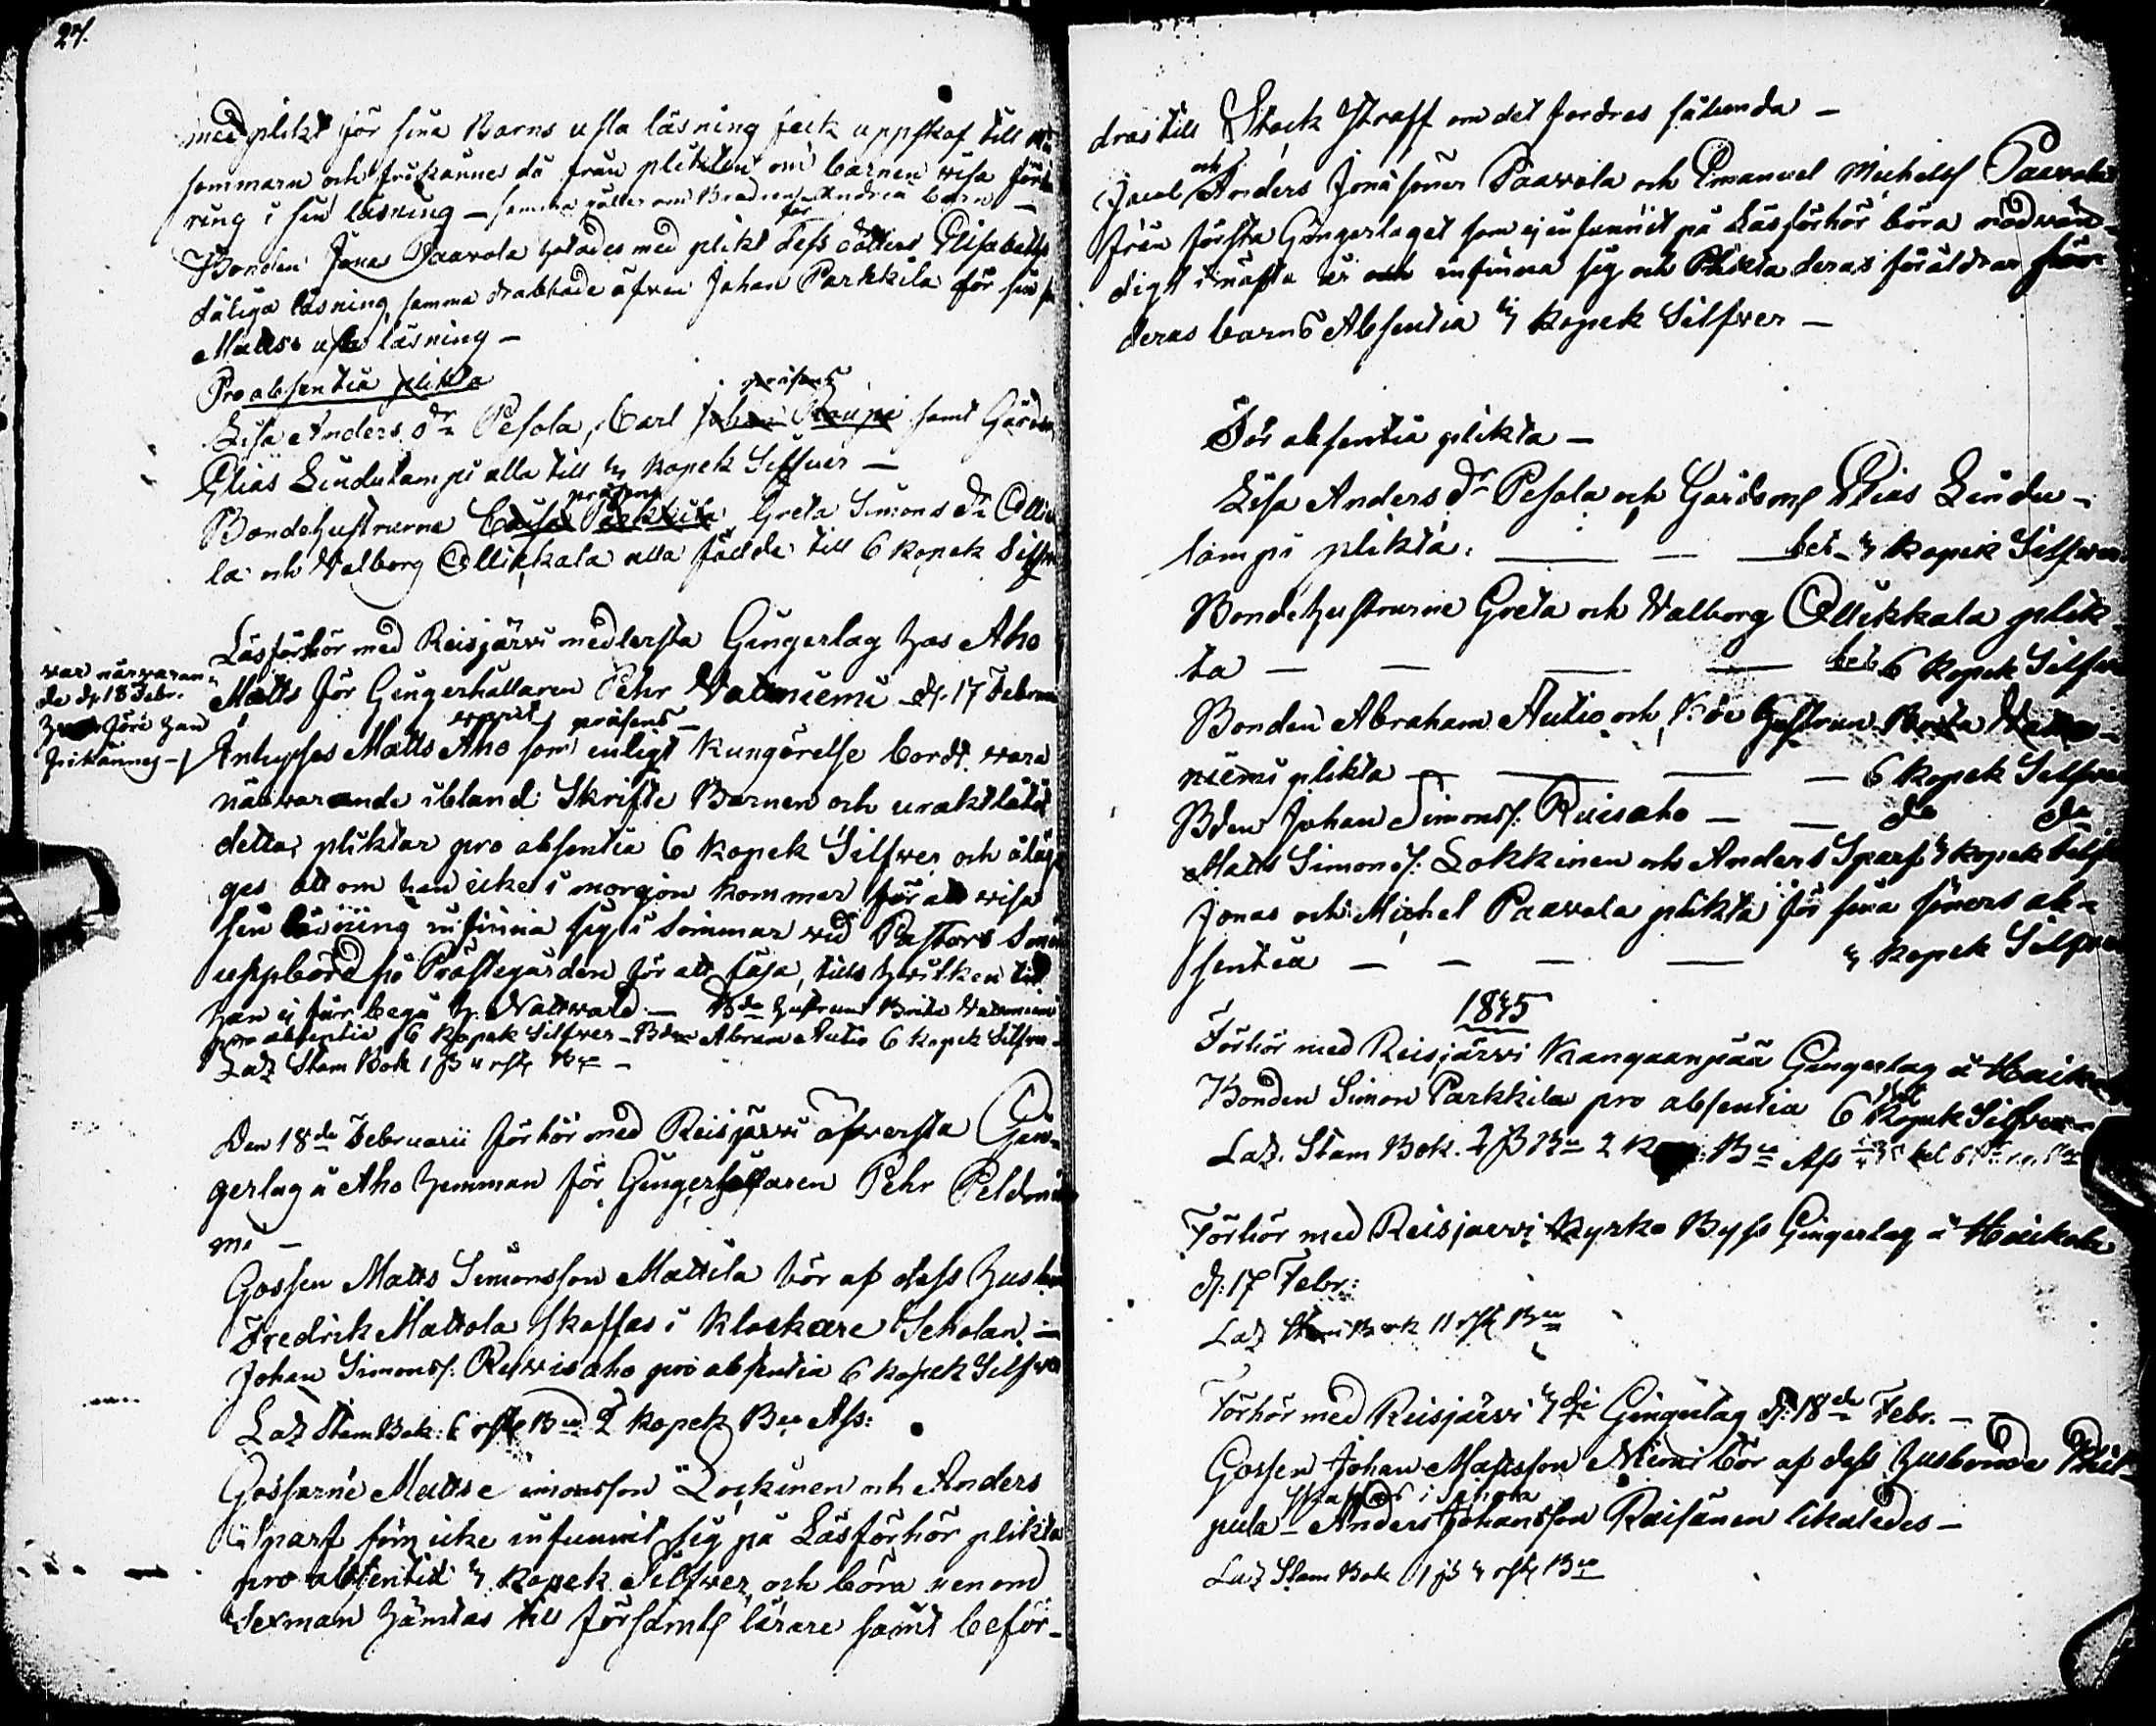 27.
med plikt för sina Barns usla läsning feck uppskof till
sommarn och frikännes då från plikten om barnen visa förbä
ring i sin läsning – samma gäller om Brodren Andreas barn –
Bonden Jonas Paavola hotades med plikt för dess dotters Elisabeths
dåliga läsning, samma drabbade äfven Johan Parkkila för sin
Matts usla läsning –
Pro absentia plikta
Lisa Anders dr Pesola, Carl Johan Raupi präsens samt Gårdm
Elias Lindulampi alla till 4 kopek Silfver –
Bondehustrurne Caisa Parkkila präsens Greta Simons dr Olli
la och Valborg Ollikkala alla fällde till 6 kopek Silfv
Läsförhör med Reisjärvi medlersta Gingerlag hos Aho
Matts för Gingerhållaren Pehr Vataniemi d. 17 Februa
var närvaran-
de d. 18 Febr.
före han
frikännes –
Inhyses Matts Aho präsens som enligt Kungörelse bordt vara
närvarande ibland Skrifte Barnen och uraktlåtit
detta, pliktar pro absentia 6 kopek Silfver och åläg
ges att om han icke i morgon kommer för att visa
sin läsning infinna sig i Sommar vid Pastors Som
uppbörd på Prästegården för att läsa, tills hvilken tid
han ej får begå H. Nattvard – Bde hustrun Brita Vataniemi
pro absentia 6 kopek Silfver – Bden Abram Autio 6 kopek Silfver
Laz Stam Bok
Den 18de Februarii förhör med Reisjärvi öfversta Gin-
gerlag å Aho hemman för Gingerhållaren Pehr Peldonie
mi –
Gossen Matts Simonsson Mattila bör af dess husbon
Fredrik Mattola skaffas i Klockare Scholan –
Johan Simonss: Reisaho pro absentia 6 kopek Silfve
Laz Stam Bok: 2 kopek Bco Ass:
Gossarne Matts Simonsson Lokkinen och Anders
Sparf som icke infunnit sig på Läsförhör plikta
pro absentia 4 kopek Silfver och böra genom
Sexman hämtas till församls lärare samt beför-
dras till Stock Straff om det fordras
Jacob och Anders Jonæ söner Paavola och Emanuel Michelss Paavola
från första Gingerlaget som ej infunnit på Läsförhör böra nödvän-
digt i nästa år och infinna sig och Plikta deras föräldrar för
deras barns Absentia 4 kopek Silfver –
För absentia plikta –
Lisa Anders dr Pesola och Gårdsm Elias Lindu-
lampi plikta. — — bet. 4 kopek Silfver
Bondehustrurne Greta och Valborg Ollikkala plik-
ta — — — — bet. 6 kopek Silfver
Bonden Abraham Autio och Bde hustrun Brita Vata-
niemi plikta — — — — 6 kopek Silfver
Bden Johan Simonss: Reisaho — — do do
Matts Simonss: Lokkinen och Anders Sparf 4 kopek Silfv
Jonas och Michel Paavola plikta för sina söners ab-
sentia — — — — 4 kopek Silfver
1845
Förhör med Reisjärvi Kangaanpää Gingerlag å Haikola
Bonden Simon Parkkila pro absentia 6 Kopek Silfver
Laz. Stam Bok.
Förhör med Reisjärvi Kyrko Byss Gingerlag å Haikola
d. 17 Febr:
Laz Stam Bok
Förhör med Reisjärvi 4de Gingerlag d: 18de Febr. –
Gossen Johan Mattsson Niemi bör af dess husbonde
skaffas i Schola
pula – Anders Johansson Raisänen likaledes –
Laz Stam Bok